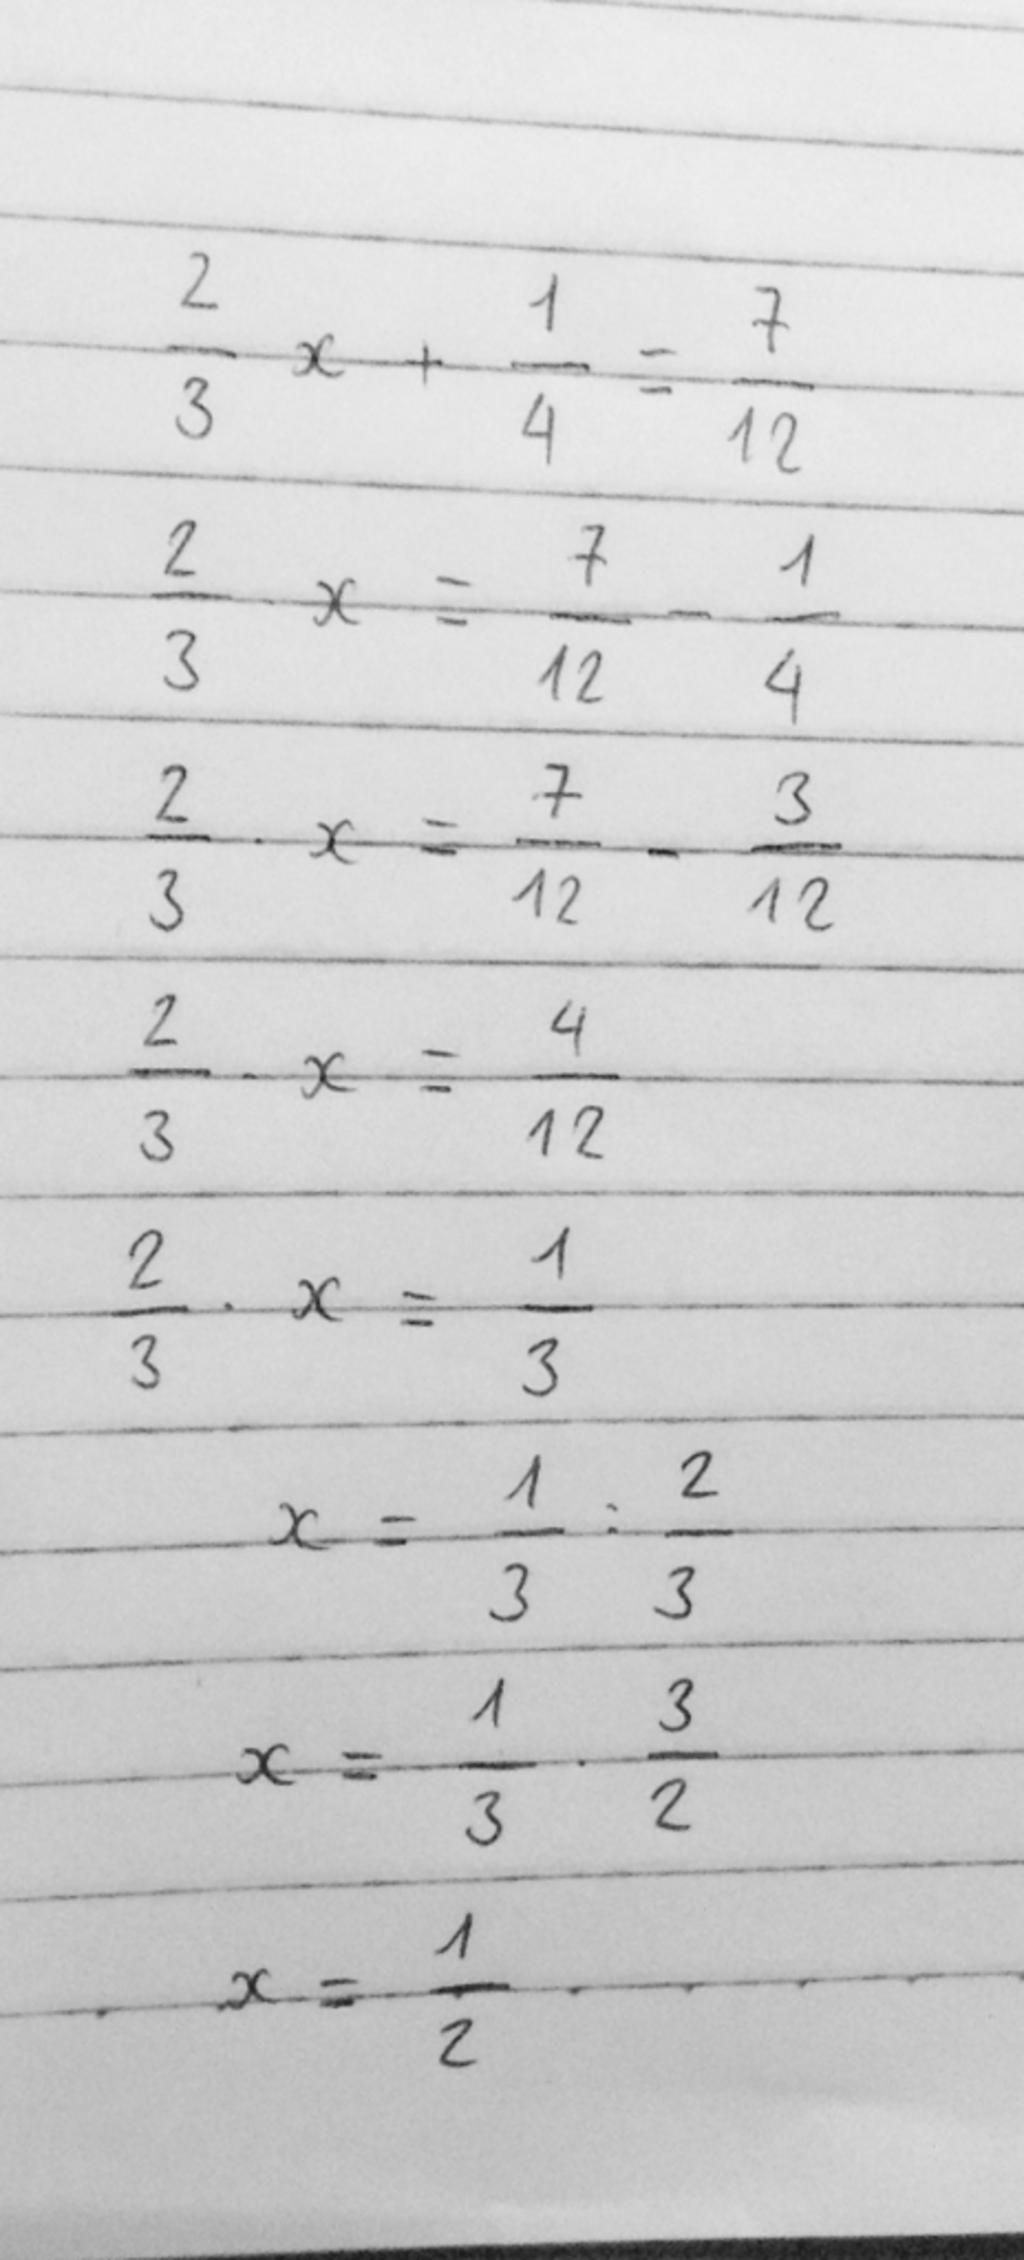 2/3 x + 1/4 = 7/12
2/3 · x = 7/12 - 1/4
2/3 · x = 7/12 - 3/12
2/3 · x = 4/12
2/3 · x = 1/3
x = 1/3 : 2/3
x = 1/3 · 3/2
x = 1/2